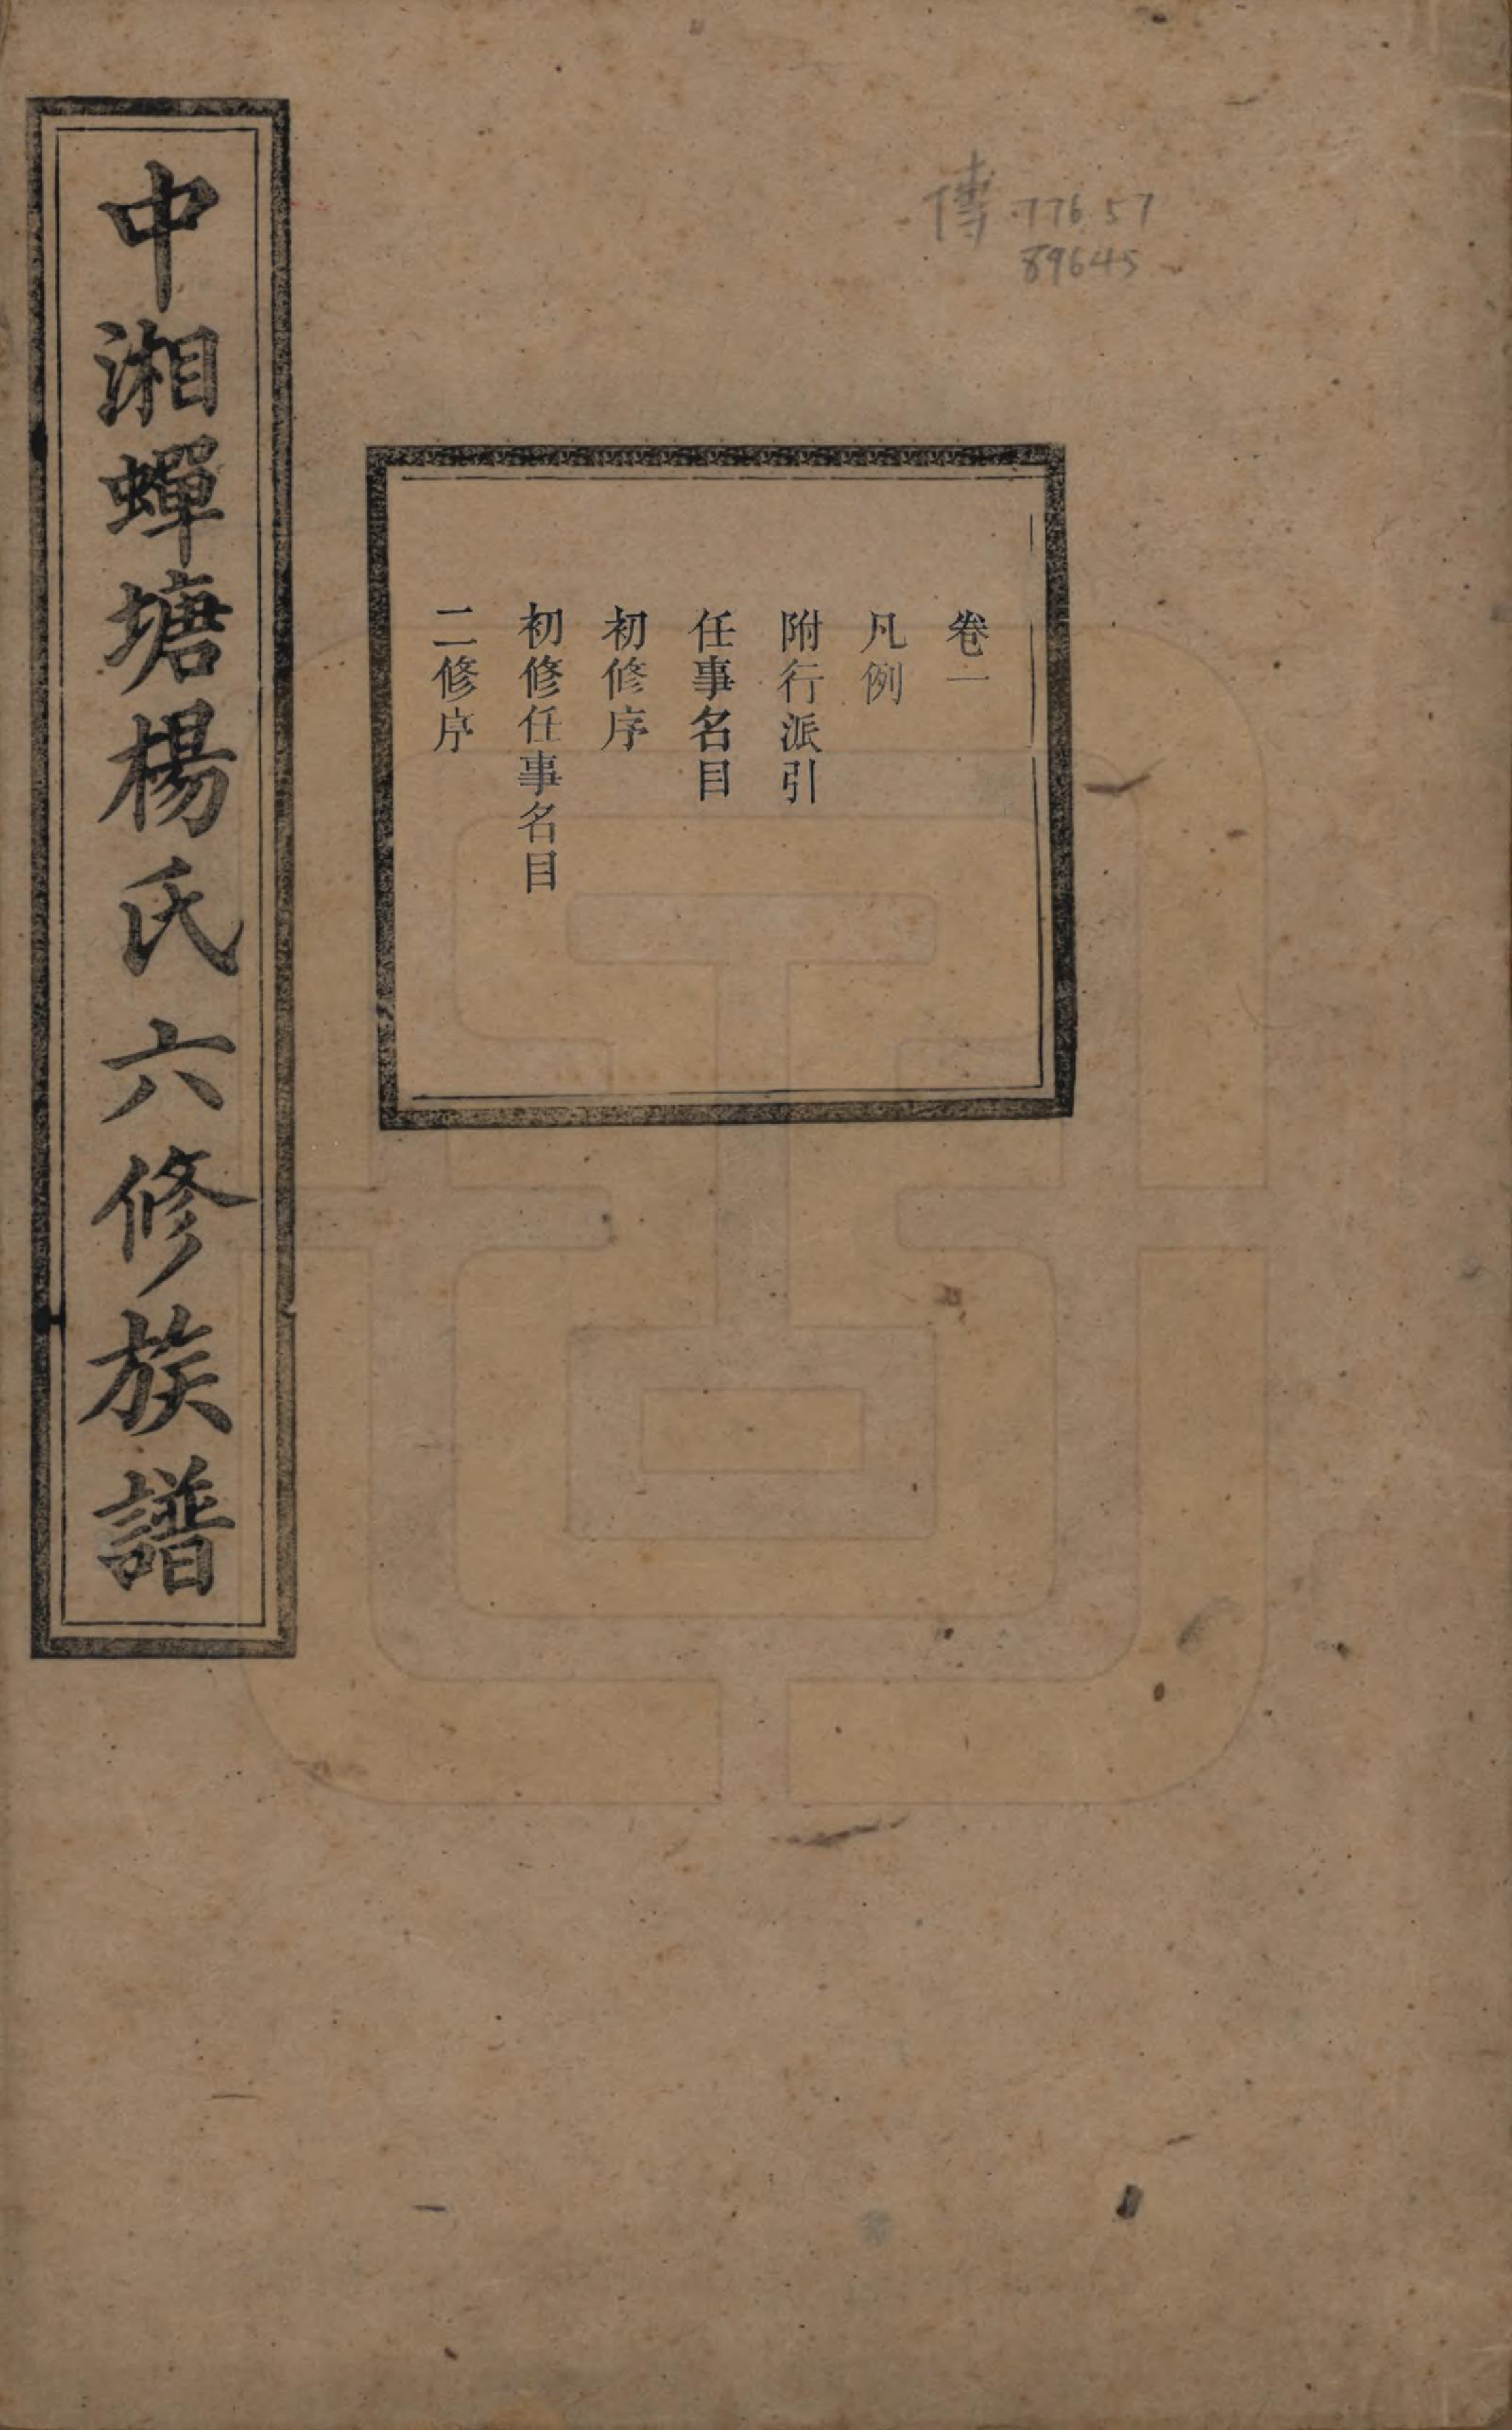 傳 776.57
89645
卷二
凡例
附行派引
任事名目
初修序
初修任事名目
二修序
中湘蟬塘楊氏六修族譜